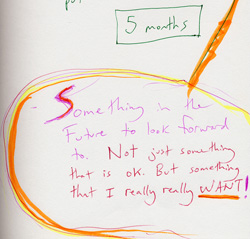 5 months
Something in the
Future to look forward
to. Not just something
that is ok. But something
that I really really WANT!